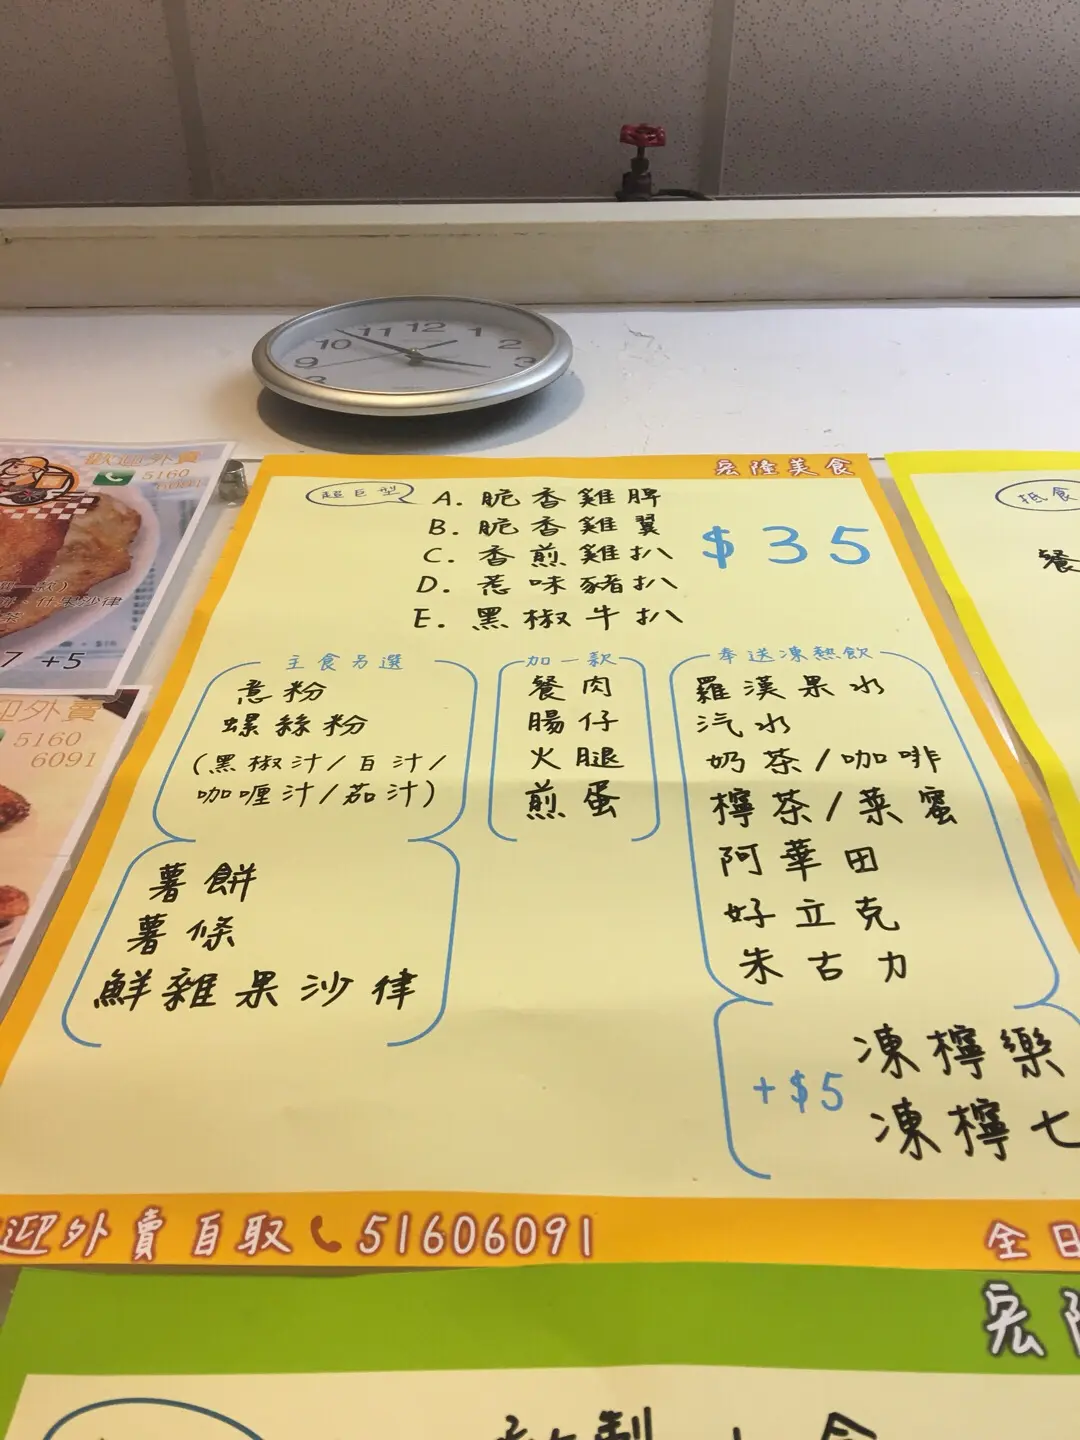 11 12 1
10 2
9 3
8
歡迎外賣
5160
一款)
什果沙律
茶
7 +5
迎外賣
5160
6091
宏隆美食
超巨型
A. 脆香雞髀
B. 脆香雞翼
C. 香煎雞扒
D. 惹味豬扒
E. 黑椒牛扒
$35
主食另選
意粉
螺絲粉
(黑椒汁/白汁/
咖喱汁/茄汁)
薯餅
薯條
鮮雜果沙律
加一款
餐肉
腸仔
火腿
煎蛋
奉送凍熱飲
羅漢果水
汽水
奶茶/咖啡
檸茶/菜蜜
阿華田
好立克
朱古力
+$5
凍檸樂
凍檸七
迎外賣自取 51606091
全日
抵食
餐
宏隆